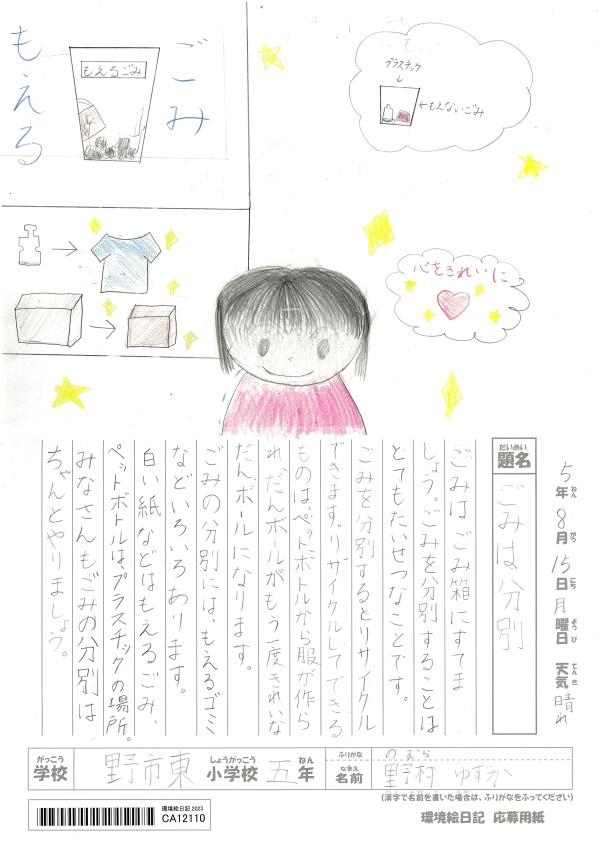 もえる
ごみ
もえるごみ
プラスチック
もえないごみ
心をきれいに
5年8月15日月曜日 天気晴れ
ねん がつ にち ようび てんき
だいめい
題名 ごみは分別
ごみはごみ箱にすてま
しょう。ごみを分別することは
とてもたいせつなことです。
ごみを分別するとリサイクル
できます。リサイクルしてできる
ものは、ペットボトルから服が作ら
れだんボールがもう一度きれいな
だんボールになります。
ごみの分別には、もえるゴミ
などいろいろあります。
白い紙などはもえるごみ、
ペットボトルは、プラスチックの場所。
みなさんもごみの分別は
ちゃんとやりましょう。
がっこう しょうがっこう ねん ふりがな のむら
学校 野市東 小学校 五年 なまえ 名前 野村 ゆずか
(漢字で名前を書いた場合は、ふりがなをふってください)
環境絵日記 2023
CA12110
環境絵日記 応募用紙